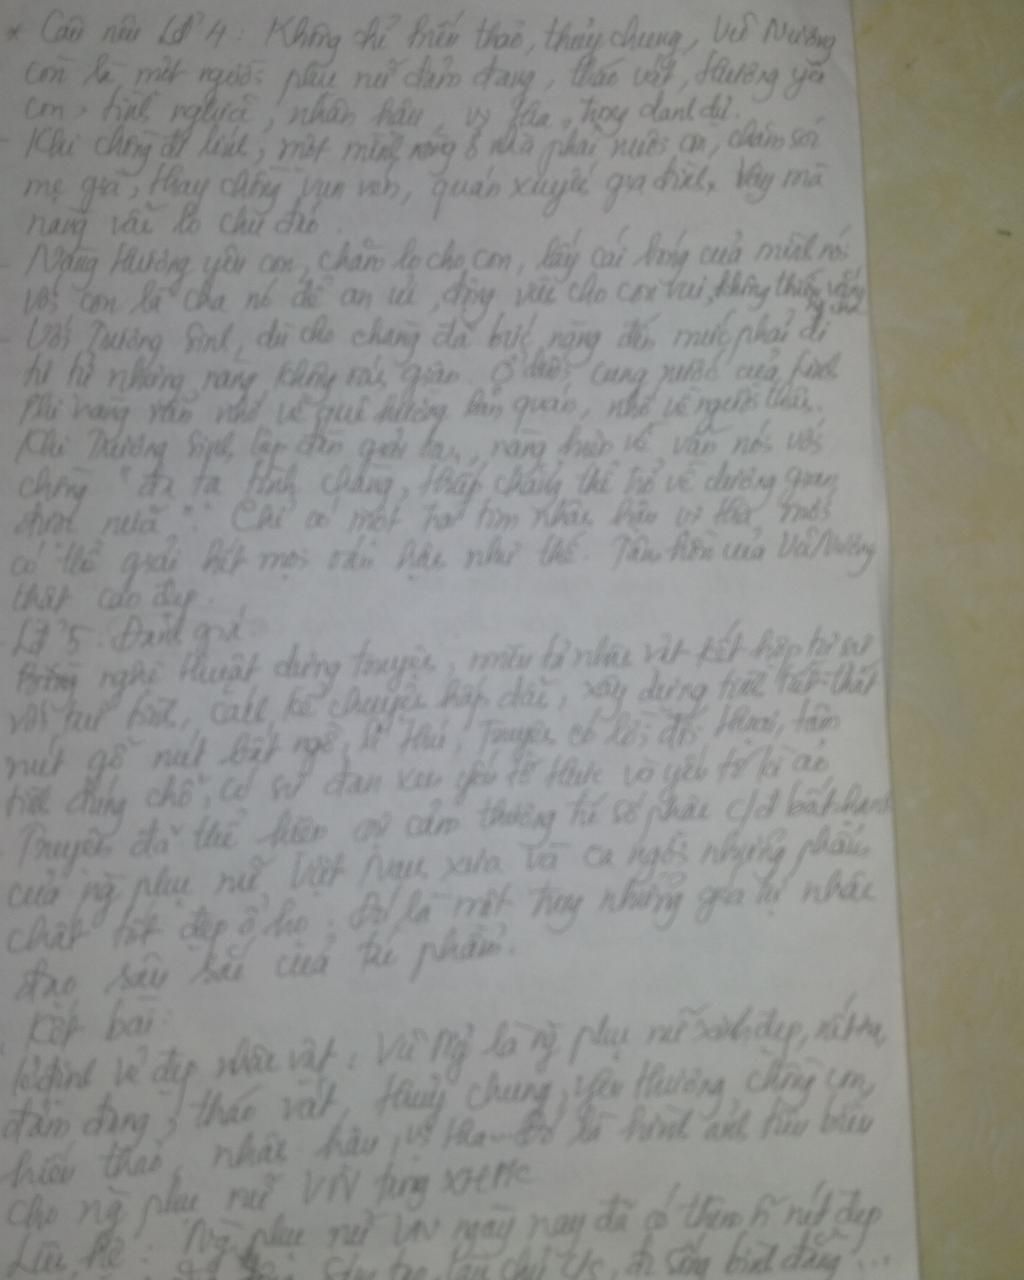 * Câu nêu Lđ 4: Không chỉ hiếu thảo, thủy chung, Vũ Nương
còn là một người phụ nữ đảm đang, tháo vát, thương yêu
con, tình nghĩa, nhân hậu, vị tha, trọng danh dự.
- Khi chồng đi lính, một mình nàng ở nhà phải nuôi con, chăm sóc
mẹ già, thay chồng vun vén, quán xuyến gia đình. Vậy mà
nàng vẫn lo chu đáo.
- Nàng thương yêu con, chăm lo cho con, lấy cái bóng của mình nói
với con là cha nó để an ủi, động viên cho con vui, không thiếu vắng
- Với Trương Sinh, dù cho chàng đã bức nàng đến mức phải đi
tự tử nhưng nàng không oán giận. Ở dưới cung nước của Linh
Phi nàng vẫn nhớ về quê hương bản quán, nhớ về người thân.
Khi Trương Sinh lập đàn giải oan, nàng hiện về vẫn nói với
chồng "đa tạ tình chàng, thiếp chẳng thể trở về dương gian
được nữa". Chỉ có một trái tim nhân hậu vị tha mới
có thể giải hết mọi oán hận như thế. Tâm hồn của Vũ Nương
thật cao đẹp.
- Lđ 5: Đánh giá
nghệ thuật dựng truyện, miêu tả nhân vật kết hợp tự sự
với trữ tình, cách kể chuyện hấp dẫn, xây dựng tình tiết thắt
nút gỡ nút bất ngờ, lí thú, Truyện có lời đối thoại,
đúng chỗ, có sự đan xen yếu tố thực và yếu tố kì ảo
Truyện đã thể hiện cảm thương số phận c/đ bất hạnh
của ng phụ nữ Việt Nam xưa và ca ngợi những phẩm
chất tốt đẹp ở họ. Đó là một trong những giá trị nhân
đạo sâu sắc của tác phẩm.
Kết bài:
vẻ đẹp nhân vật: Vũ là ng phụ nữ xinh đẹp,
đảm đang, tháo vát, thủy chung, yêu thương chồng con,
hiếu thảo, nhân hậu, vị tha. Đó là hình ảnh tiêu biểu
cho ng phụ nữ VN trong XHPK
Liên hệ: Ng phụ nữ VN ngày nay đã có thêm n nét đẹp
sống bình đẳng ...